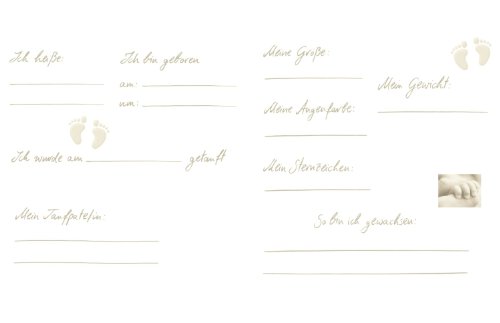 Ich heiße:
Ich bin geboren
am:
um:
Ich wurde am getauft
Mein Taufpate/in:
Meine Größe:
Mein Gewicht:
Meine Augenfarbe:
Mein Sternzeichen:
So bin ich gewachsen: